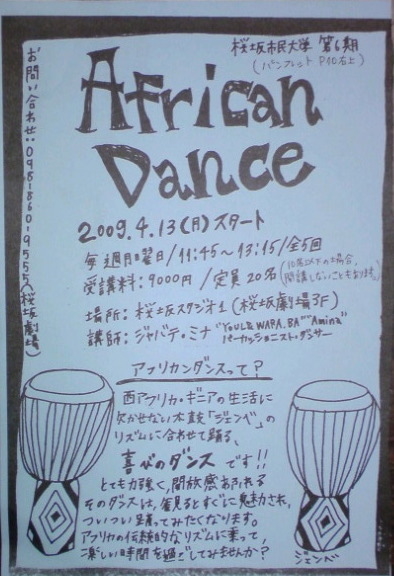 桜坂市民大学 第6期
(パンフレット P40右上)
African
Dance
お問い合わせ:098-860-9555(桜坂劇場)
2009.4.13(月)スタート
毎週月曜日/11:45~13:15/全5回
受講料:9000円/定員20名(10名以下の場合、
開講しないこともあります。)
場所:桜坂スタジオ1(桜坂劇場3F)
講師:ジャバテ・ミナ "YOULE WARA.BA" "Amina"
パーカッショニスト・ダンサー
アフリカンダンスって?
西アフリカ・ギニアの生活に
欠かせない太鼓「ジェンベ」の
リズムに合わせて踊る、
喜びのダンスです!!
とても力強く、開放感あふれる
そのダンスは、看見るとすぐに魅力され、
ついつい踊ってみたくなります。
アフリカの伝統的なリズムに乗って、
楽しい時間を過ごしてみませんか?
ジェンベ